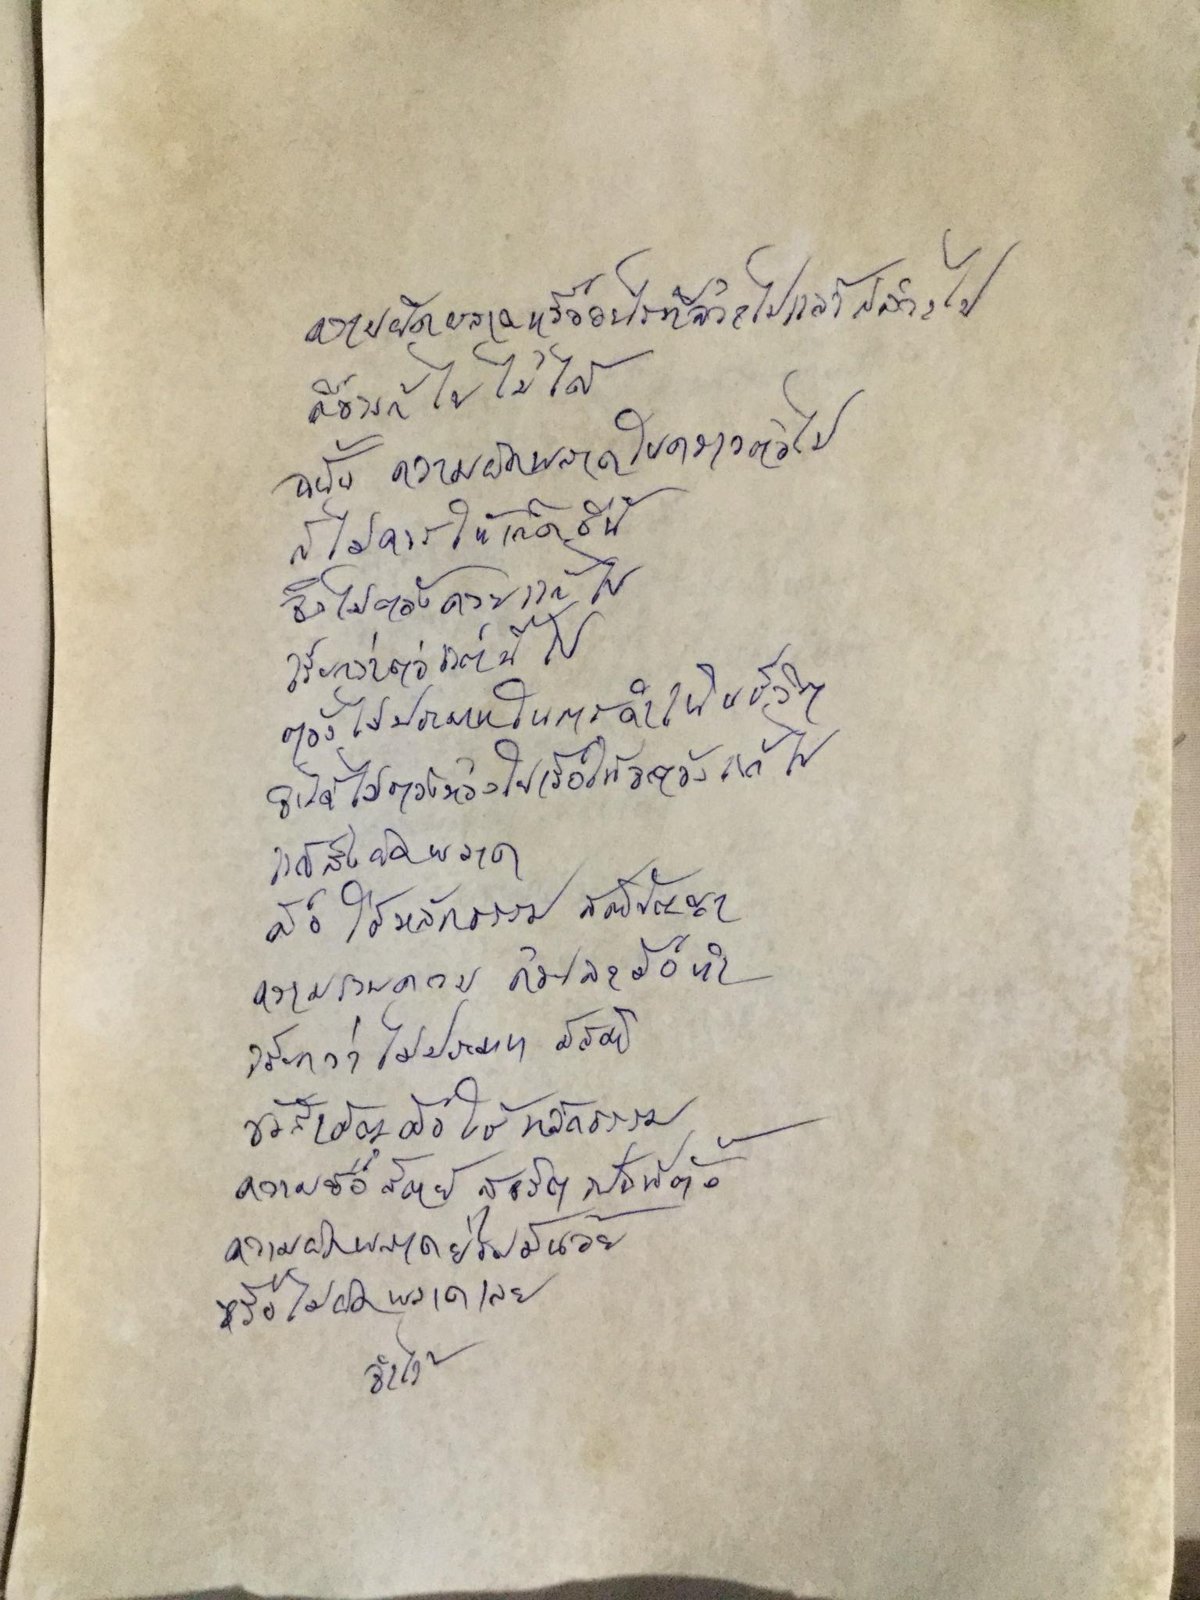 ความผิดพลาดหรืออะไรที่ล่วงไปแล้วก็ล่วงไป
แก้ไขไม่ได้
ฉะนั้น ความผิดพลาดในคราวต่อไป
ก็ไม่ควรให้เกิดขึ้น
จึงไม่ต้องคอยแก้ไข
เรียกว่าต่อแต่นี้ไป
ต้องไม่ประมาทในการดำเนินชีวิต
จะได้ไม่ต้องห่วงในเรื่องที่จะต้องแก้ไข
แก้สิ่งผิดพลาด
คือ ใช้หลักธรรม สติปัญญา
ความรอบคอบ ก่อนลงมือทำ
เรียกว่า ไม่ประมาท มีสติ
ข้อสำคัญคือใช้หลักธรรม
ความซื่อสัตย์ สุจริต เป็นที่ตั้ง
ความผิดพลาดย่อมมีน้อย
หรือไม่ผิดพลาดเลย
จำไว้